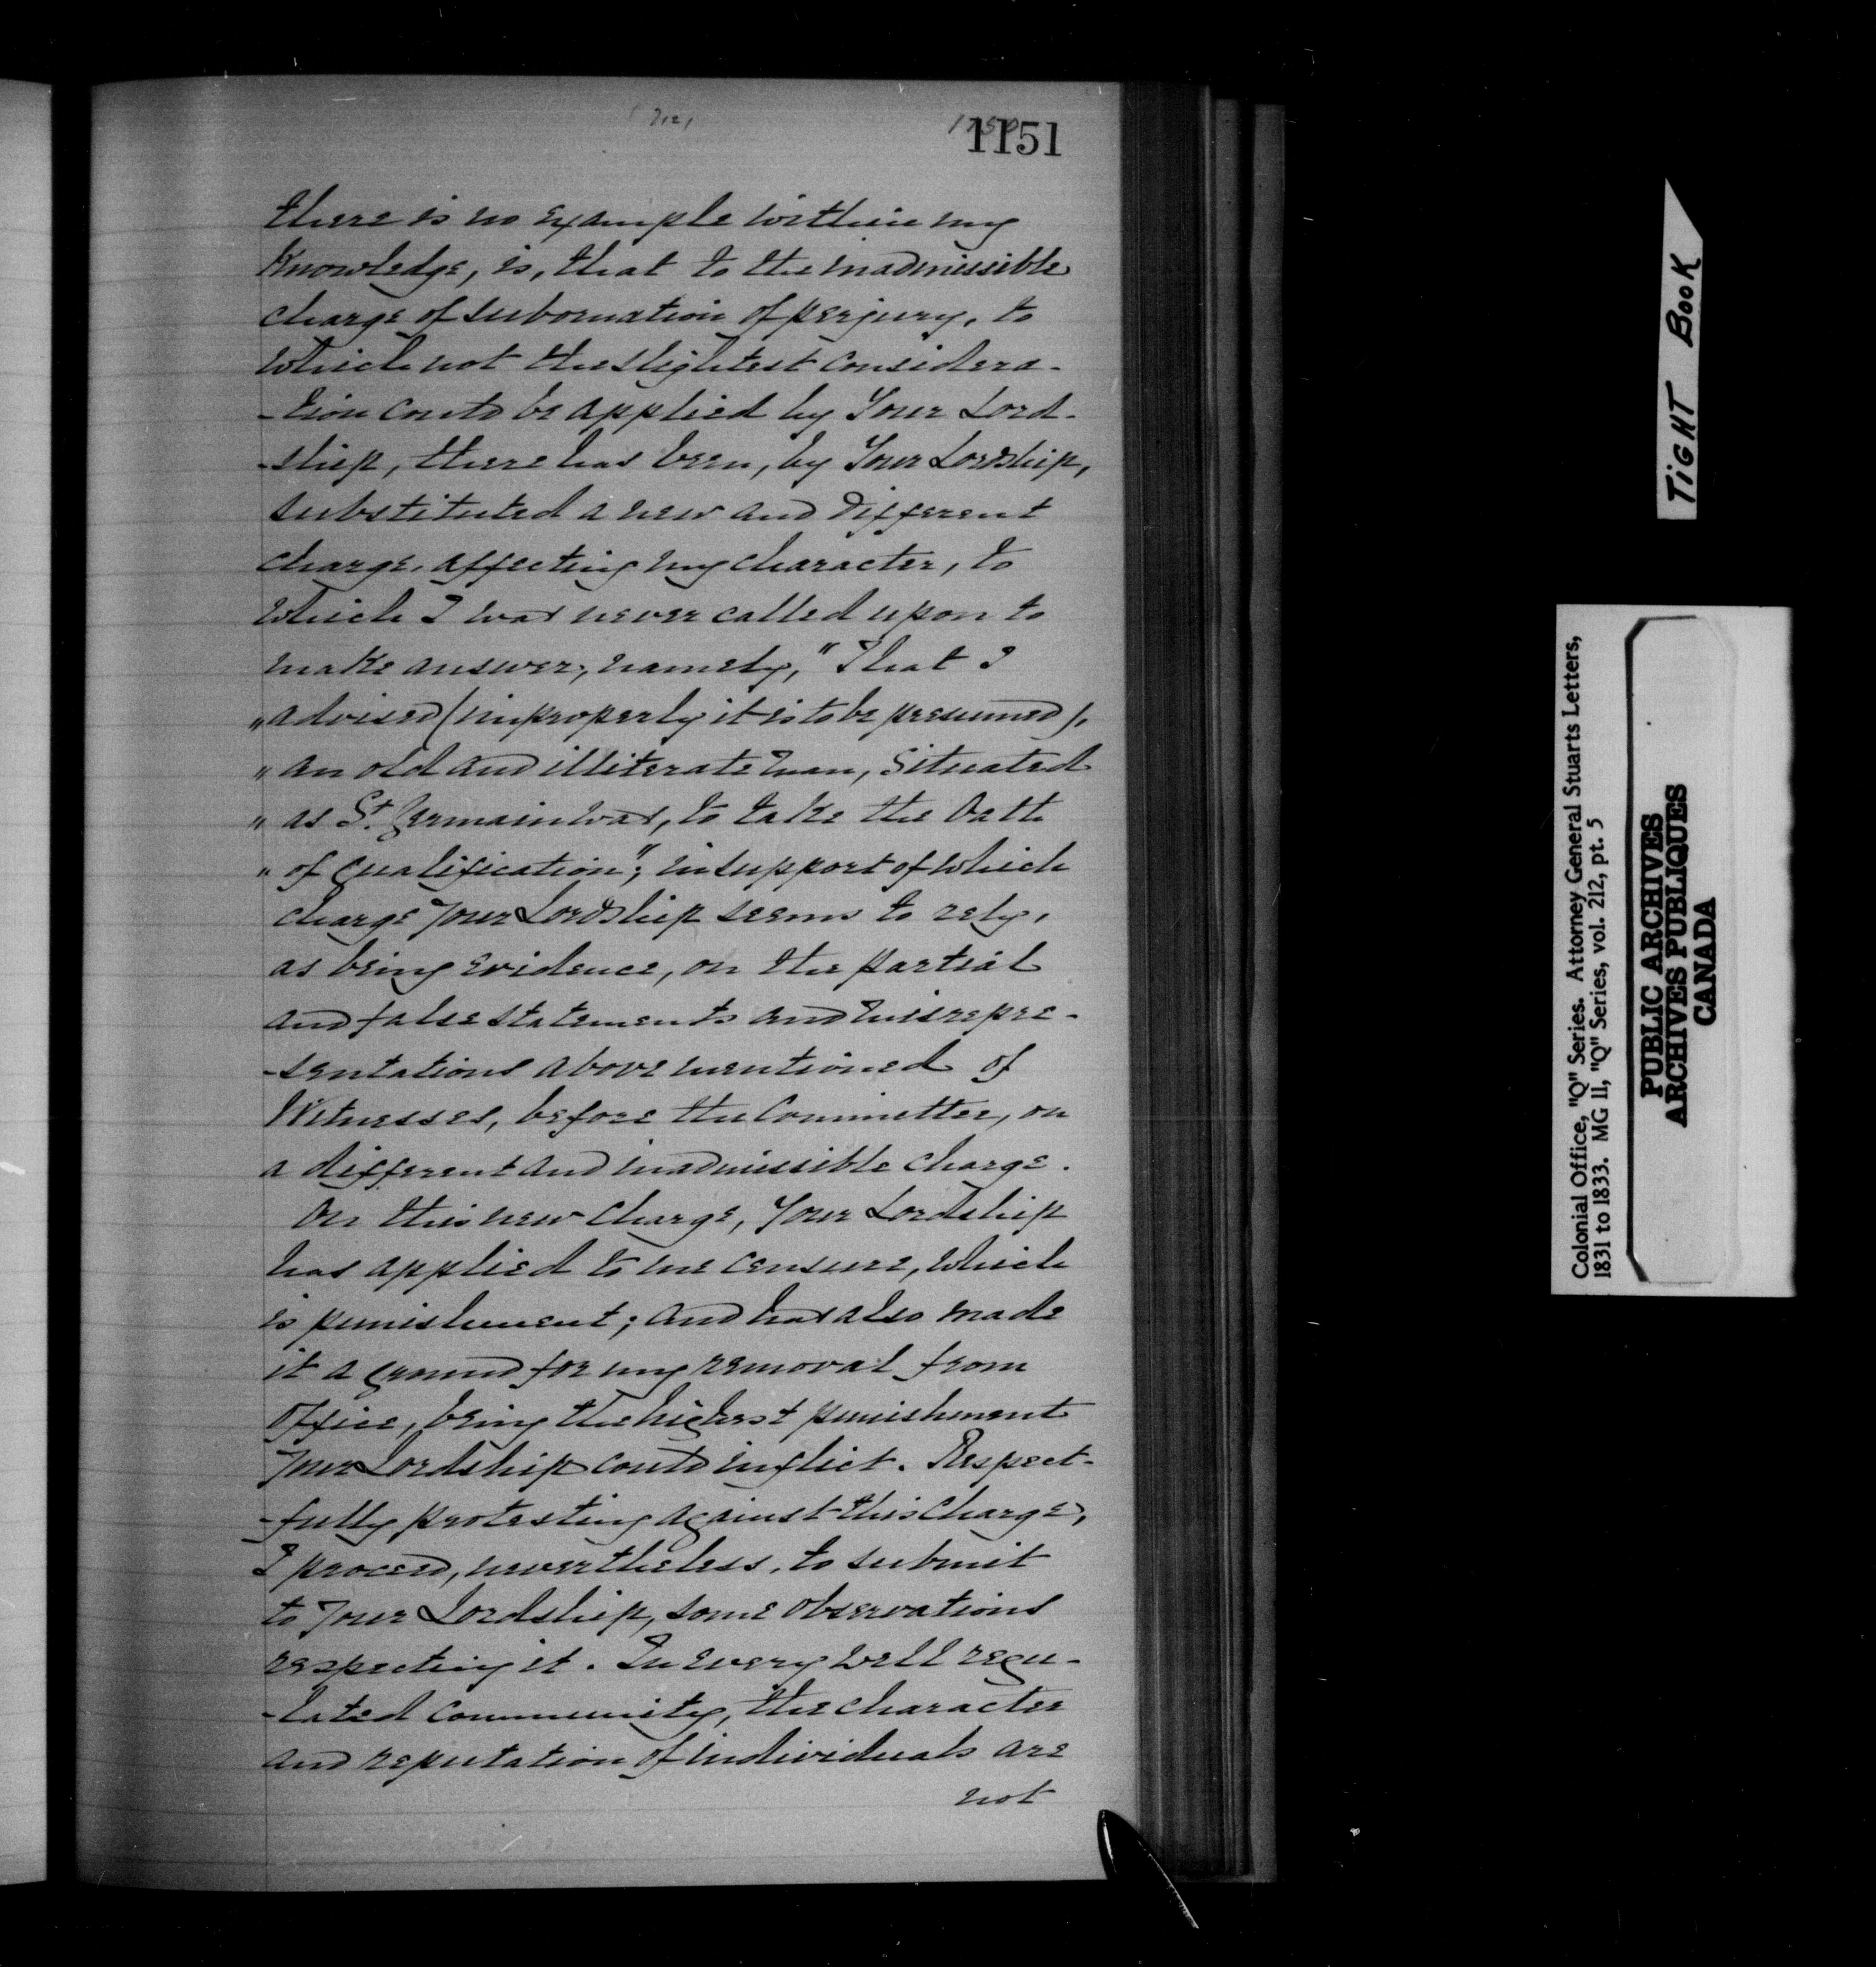 1151
there is no example within my
Knowledge, is, that to the inadmissible
charge of subornation of perjury, to
which not the slightest considera-
-tion could be applied by Your Lord-
-ship, there has been, by Your Lordship,
substituted a new and different
charge, affecting my character, to
which I was never called upon to
make answer; namely, "That I
" advised (improperly it is to be presumed),
" an old and illiterate man, situated
" as St. Germain was, to take the Oath
" of qualification"; in support of which
charge Your Lordship seems to rely,
as being evidence, on the partial
and false statements and misrepre-
-sentations above mentioned of
Witnesses, before the Committee, on
a different and inadmissible charge.
On this new charge, Your Lordship
has applied to me censure, which
is punishment; and has also made
it a ground for my removal from
Office, being the highest punishment
Your Lordship could inflict. Respect-
-fully protesting against this charge,
I proceed, nevertheless, to submit
to Your Lordship, some observations
respecting it. In every well regu-
-lated community, the character
and reputation of individuals are
not
TIGHT BOOK
Colonial Office, "Q" Series. Attorney General Stuarts Letters,
1831 to 1833. MG 11, "Q" Series, vol. 212, pt. 5
PUBLIC ARCHIVES
ARCHIVES PUBLIQUES
CANADA